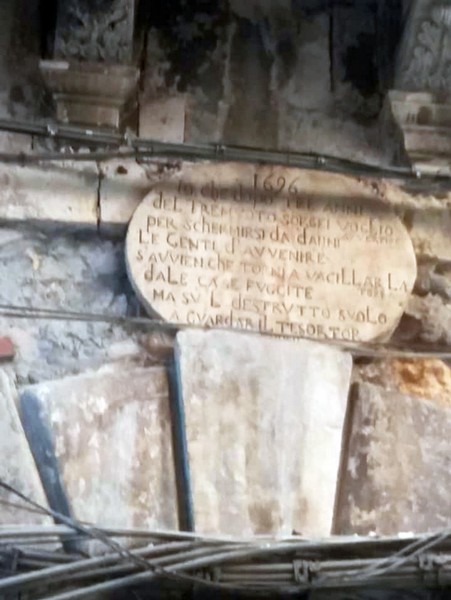 1696
IO CHE DOPO TRE ANNI
DEL TREMVOTO SORGEI VOGLIO
PER SCHERMIRSI DA DANNI
LE GENTI D'AVVENIRE
S'AVVIEN CHE TORNI A VACILLAR LA
DALE CASE FUGGITE
MA SV L DESTRUTTO SVOLO
A GVARDAR IL TESOR TOR